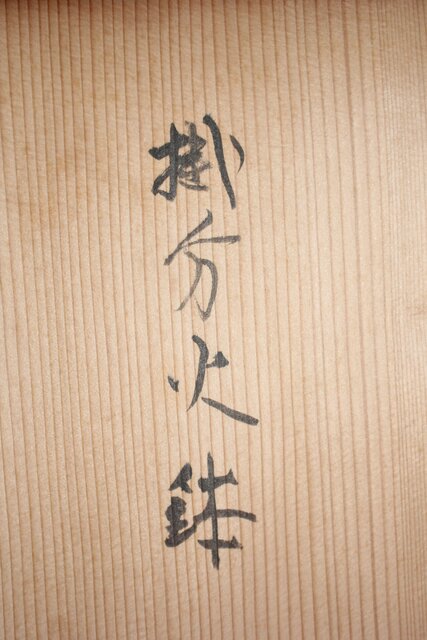 掛分火鉢